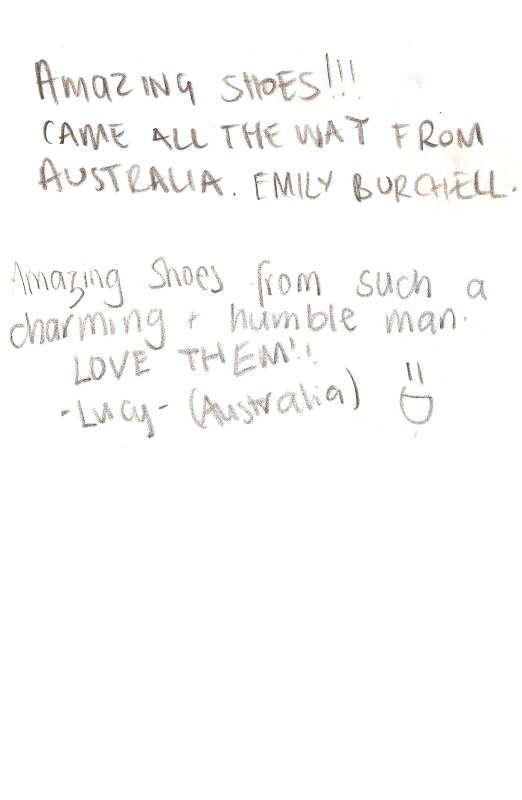 AMAZING SHOES!!!
CAME ALL THE WAY FROM
AUSTRALIA. EMILY BURCHELL.
Amazing Shoes from such a
charming + humble man.
LOVE THEM!!
-Lucy- (Australia)